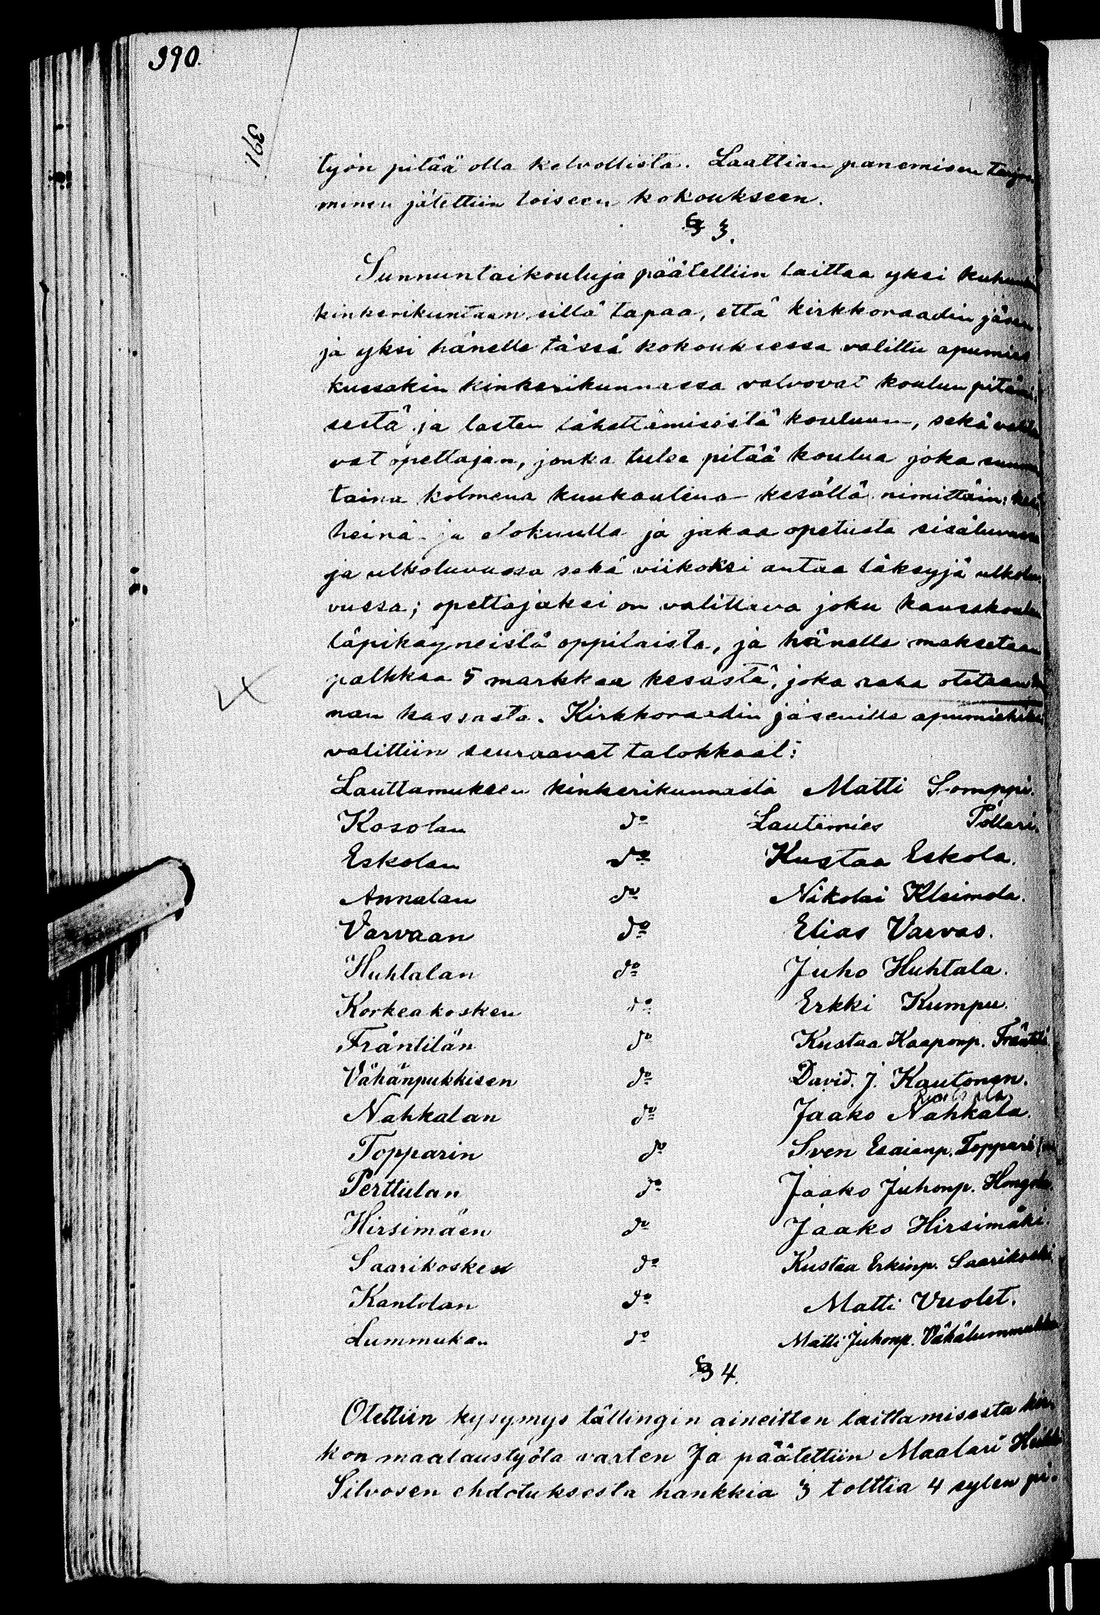 390.
391
työn pitää olla kelvollista. Laattian panemisen
minen jätettiin toiseen kokoukseen.
§ 3.
Sunnuntaikouluja päätettiin laittaa yksi
kinkerikuntaan sillä tapaa, että kirkkoraadin jäsen
ja yksi hänelle tässä kokouksessa valittu apumies
kussakin kinkerikunnassa valvovat koulun pitämi
sestä ja lasten lähettämisestä kouluun, sekä valitse
vat opettajan, jonka tulee pitää koulua joka sunnun
taina kolmena kuukautena kesällä nimittäin: kesä
heinä ja elokuulla ja jakaa opetusta sisäluvussa
ja ulkoluvussa sekä viikoksi antaa läksyjä ulkolu
vussa; opettajaksi on valittava joku kansakoulun
läpikäyneistä oppilaista, ja hänelle maksetaan
palkkaa 5 markkaa kesästä, joka raha otetaan
nan kassasta. Kirkkoraadin jäsenille apumiehiksi
valittiin seuraavat talokkaat:
Lauttamuksen kinkerikunnasta Matti Somppi.
Kosolan do Lautamies Pollari.
Eskolan do Kustaa Eskola.
Annalan do Nikolai Kleimola.
Varvaan do Elias Varvas.
Huhtalan do Juho Huhtala.
Korkeakosken do Erkki Kumpu.
Fräntilän do Kustaa Kaaponp. Fräntilä
Vähänpukkisen do David. J. Kautonen.
Nahkalan do Jaako Nahkala.
Topparin do Sven Esaianp. Toppari
Perttulan do Jaako Juhonp.
Hirsimäen do Jaako Hirsimäki.
Saarikosken do Kustaa Erkinp. Saarikoski
Kantolan do Matti Vuolet.
Lummukan do Matti Juhonp. Vähälummukka
§ 4.
Otettiin kysymys tällingin aineitten laittamisesta kir
kon maalaustyötä varten Ja päätettiin Maalari Heikki
Silvosen ehdotuksesta hankkia 3 tolttia 4 sylen pi-